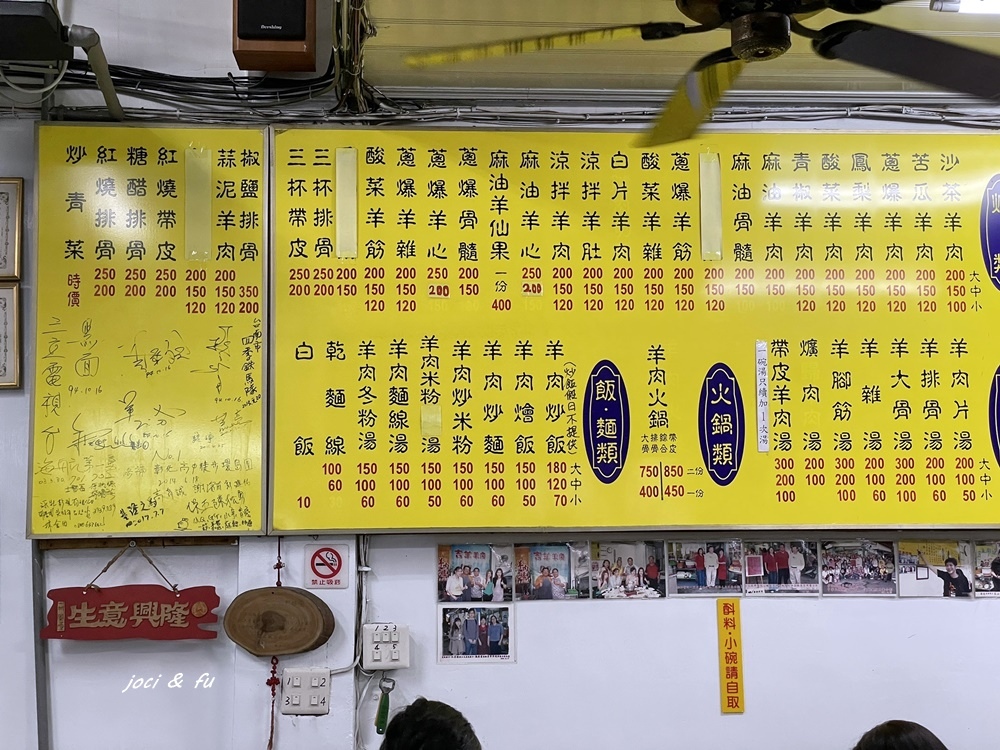 炒類
大
中
小
沙茶羊肉 200 150 100
苦瓜羊肉 200 150 120
蔥爆羊肉 200 150 120
鳳梨羊肉 200 150 120
酸菜羊肉 200 150 120
青椒羊肉 200 150 120
麻油羊肉 200 150 120
麻油骨髓 200 150
200 150 120
蔥爆羊筋 200 150 120
酸菜羊雜 200 150 120
白片羊肉 200 150 120
涼拌羊肚 200 150 120
涼拌羊肉 200 150 120
麻油羊心 250 200
麻油羊仙果 一份 400
蔥爆骨髓 200 150
蔥爆羊心 250 200
蔥爆羊雜 200 150 120
酸菜羊筋 200 150 120
200 150
三杯排骨 250 200
三杯帶皮 250 200
椒鹽排骨 350 200
蒜泥羊肉 200 150 120
200 150 120
紅燒帶皮 250 200
糖醋排骨 250 200
紅燒排骨 250 200
炒青菜 時價
大
中
小
羊肉片湯 200 100 50
羊排骨湯 200 100 60
羊大骨湯 300 200 100
羊雜湯 200 100 60
羊腳筋湯 300 200 100
爌肉湯 200 100
帶皮羊肉湯 300 200 100
一碗湯只續加1次湯
火鍋類
羊肉火鍋
大骨 排骨 綜合 帶皮
750 850 二份
400 450 一份
飯·麵類
(炒飯假日不提供)
大
中
小
羊肉炒飯 180 120 70
羊肉燴飯 150 100 50
羊肉炒麵 150 100 60
羊肉炒米粉 150 100 60
羊肉米粉湯 150 100 50
羊肉麵線湯 150 100 60
羊肉冬粉湯 150 100 60
乾麵線 100 60
白飯 10
三立電視
黑面
94.10.16
台南市
四季鐵馬隊
No.1
禁止吸菸
生意興隆
1 2 3
4 5
1 2
3 4
斟料·小碗請自取
joci & fu